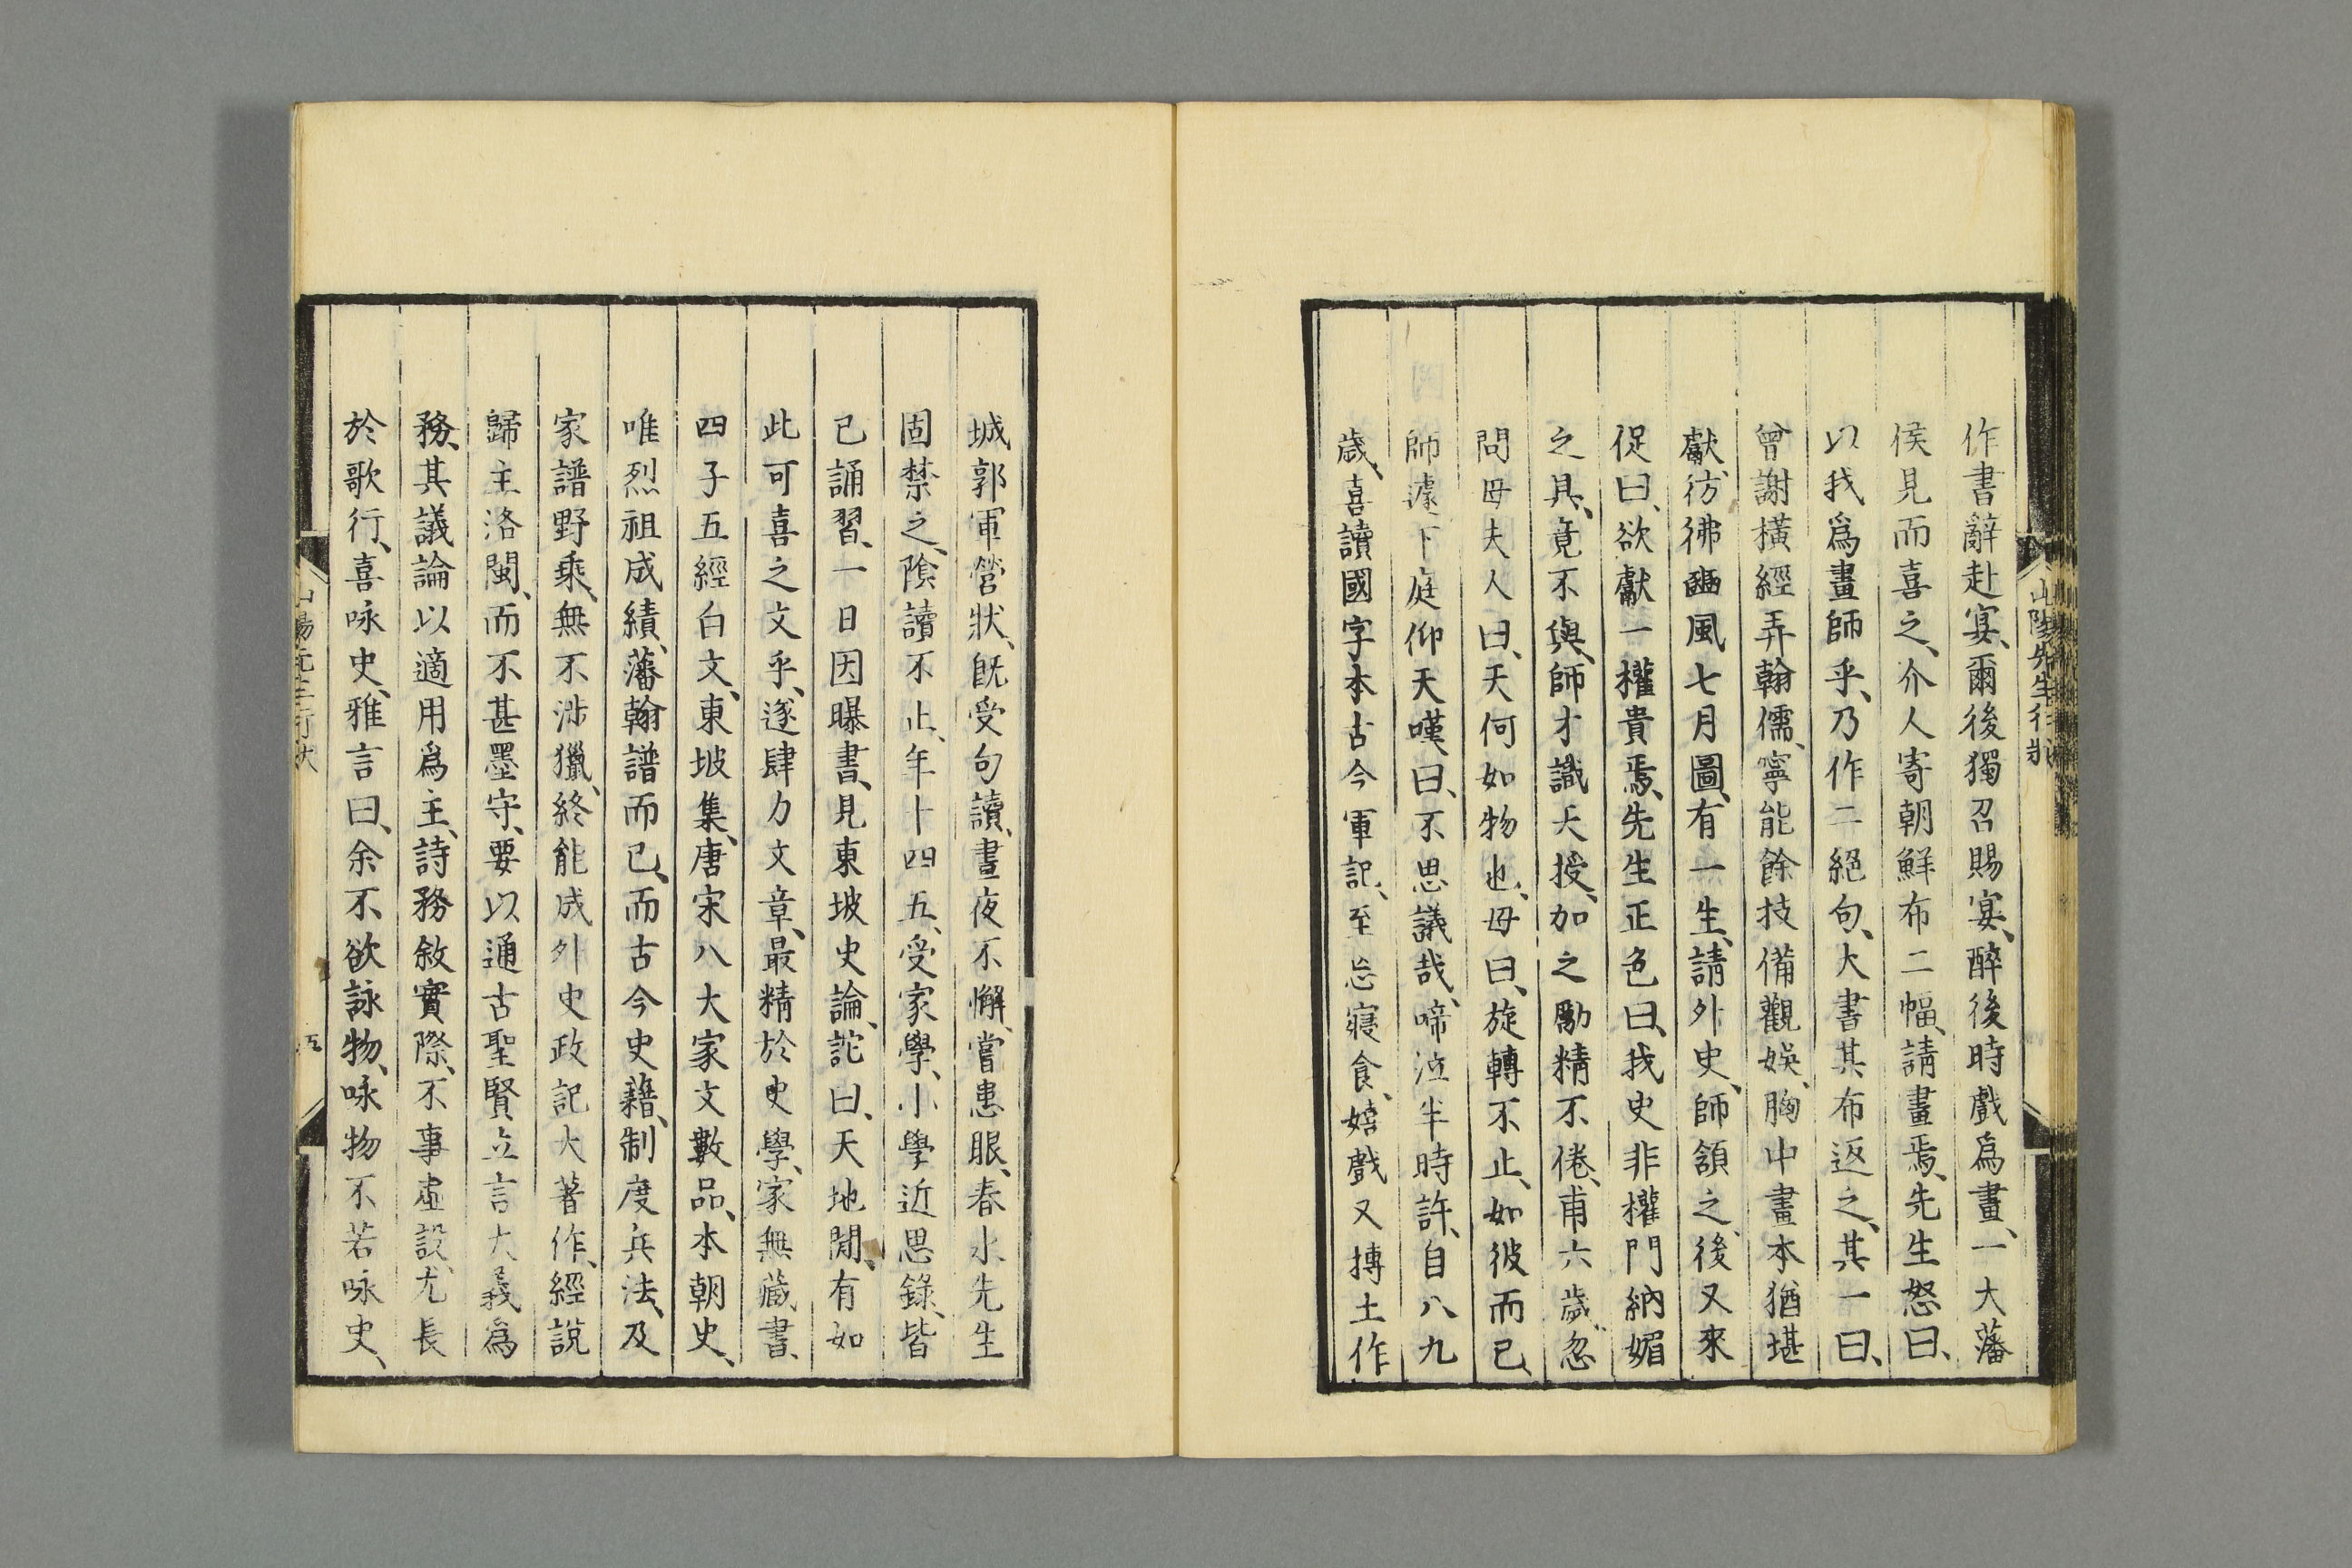 山陽先生行狀
作書辭赴宴、爾後獨召賜宴、醉後時戲爲畫、一大藩
侯見而喜之、介人寄朝鮮布二幅、請畫焉、先生怒曰、
以我爲畫師乎、乃作二絕句、大書其布返之、其一曰、
曾謝橫經弄翰儒、寧能餘技備觀娛、胸中畫本猶堪
獻、彷彿豳風七月圖、有一生、請外史、師頷之、後又來
促曰、欲獻一權貴焉、先生正色曰、我史非權門納媚
之具、竟不與、師才識天授、加之勵精不倦、甫六歲、忽
問母夫人曰、天何如物也、母曰、旋轉不止、如彼而已、
師遽下庭仰天嘆曰、不思議哉、啼泣半時許、自八九
歲、喜讀國字本古今軍記、至忘寢食、嬉戲又摶土作
城郭軍營狀、旣受句讀、晝夜不懈、嘗患眼、春水先生
固禁之、陰讀不止、年十四五、受家學、小學近思錄、皆
已誦習、一日因曝書、見東坡史論、詑曰、天地閒、有如
此可喜之文乎、遂肆力文章、最精於史學、家無藏書、
四子五經白文、東坡集、唐宋八大家文數品、本朝史、
唯烈祖成績、藩翰譜而已、而古今史籍、制度兵法、及
家譜野乘、無不涉獵、終能成外史政記大著作、經說
歸主洛閩、而不甚墨守、要以通古聖賢立言大義爲
務、其議論以適用爲主、詩務敘實際、不事虛設、尤長
於歌行、喜咏史、雅言曰、余不欲詠物、咏物不若咏史、
五